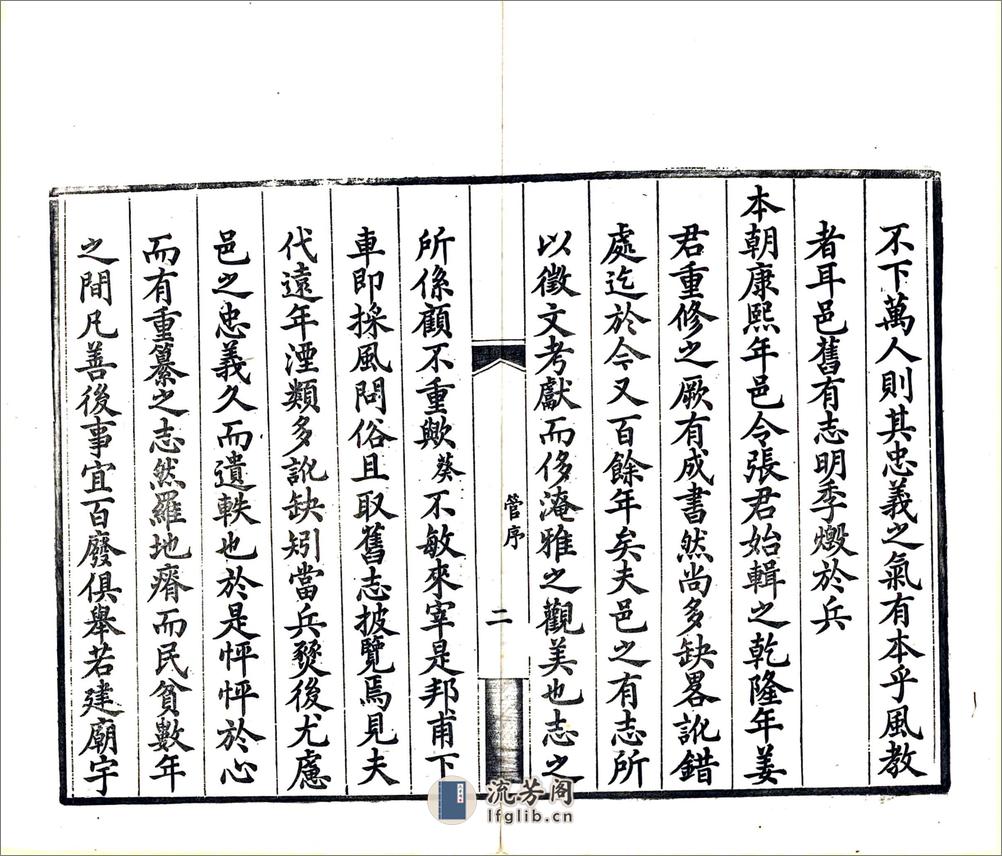 不下萬人則其忠義之氣有本乎風教
者耳邑舊有志明季燬於兵
本朝康熙年邑令張君始輯之乾隆年姜
君重修之厥有成書然尚多缺畧訛錯
處迄於今又百餘年矣夫邑之有志所
以徵文考獻而侈淹雅之觀美也志之
管序
二
所係顧不重歟葵不敏來宰是邦甫下
車即採風問俗且取舊志披覽焉見夫
代遠年湮類多訛缺矧當兵燹後尤慮
邑之忠義久而遺軼也於是怦怦於心
而有重纂之志然羅地瘠而民貧數年
之間凡善後事宜百廢俱舉若建廟宇
流芳阁
lfglib.cn